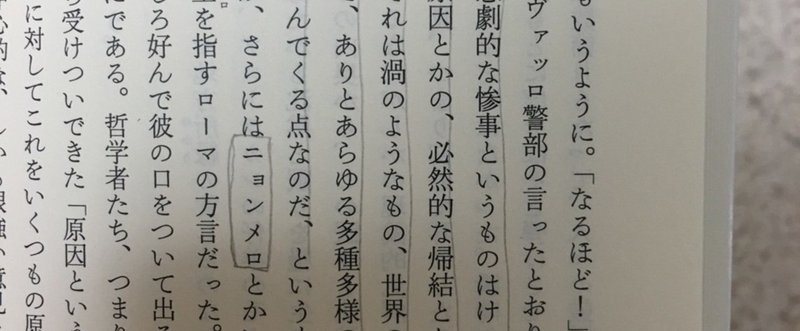 もいうように。「なるほど！」
ヴァッロ警部の言ったとおり
悲劇的な惨事というものはけ
原因とかの、必然的な帰結と
それは渦のようなもの、世界の
、ありとあらゆる多種多様の
んでくる点なのだ、という
、さらにはニョンメロとか
を指すローマの方言だった。
しろ好んで彼の口をついて出る
にである。哲学者たち、つまり
ら受けついできた「原因という
に対してこれをいくつもの原